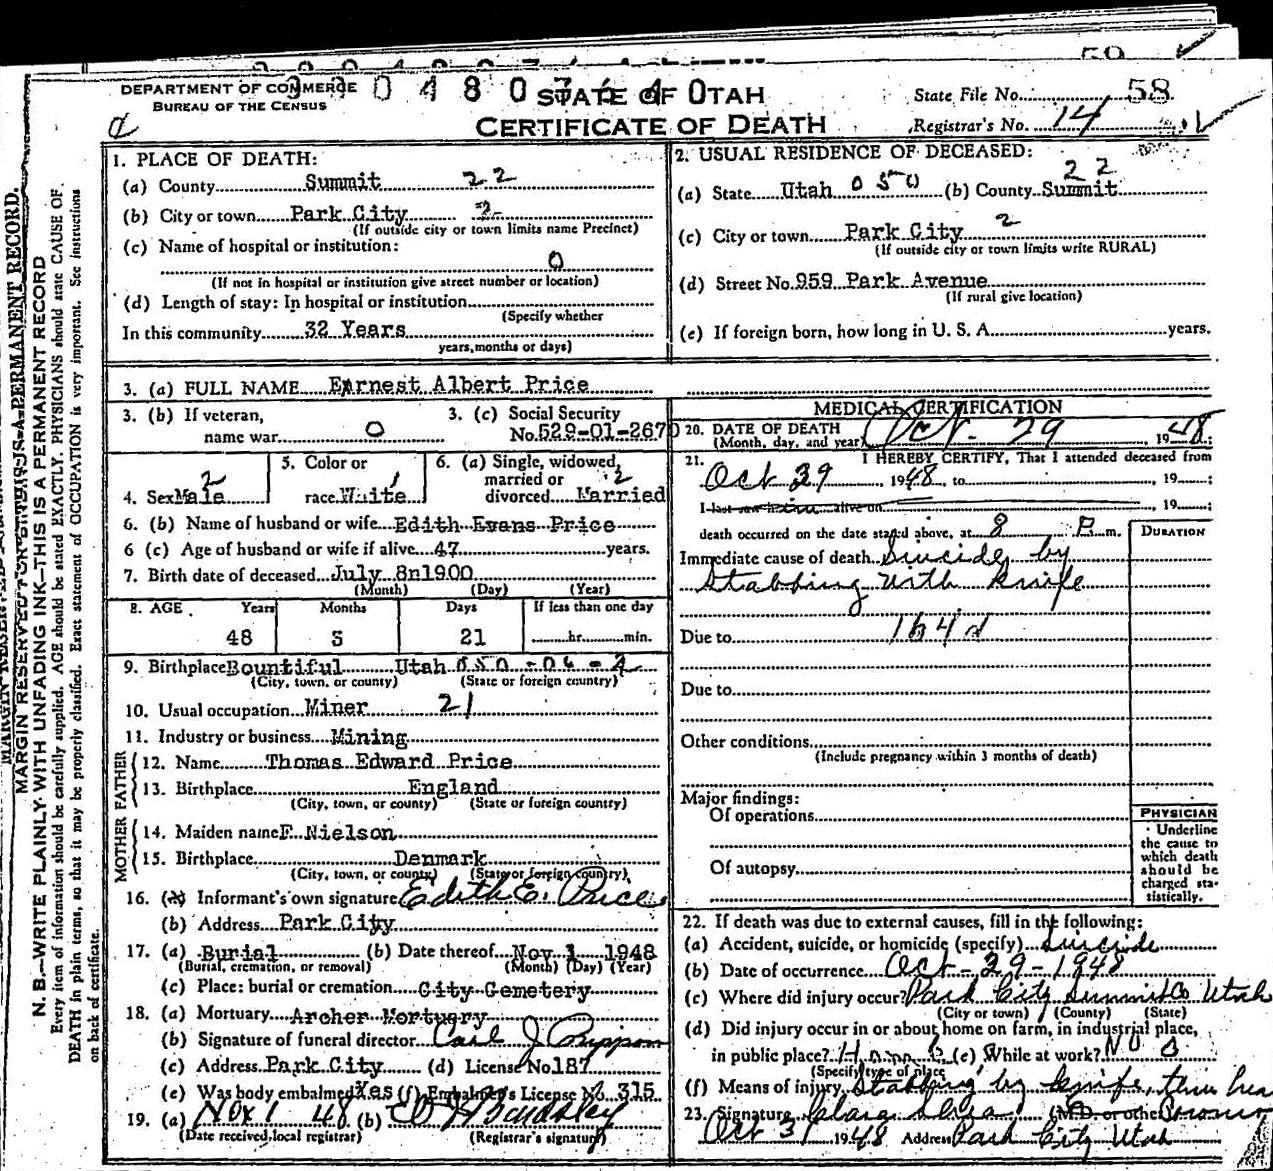 59
DEPARTMENT OF COMMERCE
BUREAU OF THE CENSUS
STATE OF UTAH
CERTIFICATE OF DEATH
State File No. 58
Registrar's No. 14
MARGIN RESERVED FOR BINDING
THIS IS A PERMANENT RECORD.
N. B.—WRITE PLAINLY WITH UNFADING INK—THIS IS A PERMANENT RECORD
Every item of information should be carefully supplied. AGE should be stated EXACTLY. PHYSICIANS should state CAUSE OF
DEATH in plain terms, so that it may be properly classified. Exact statement of OCCUPATION is very important. See instructions
on back of certificate.
1. PLACE OF DEATH:
(a) County Summit 22
(b) City or town Park City 2
(If outside city or town limits name Precinct)
(c) Name of hospital or institution:
0
(If not in hospital or institution give street number or location)
(d) Length of stay: In hospital or institution
(Specify whether
In this community 32 Years
years, months or days)
2. USUAL RESIDENCE OF DECEASED:
22
(a) State Utah 050 (b) County Summit
(c) City or town Park City 2
(If outside city or town limits write RURAL)
(d) Street No. 959 Park Avenue
(If rural give location)
(e) If foreign born, how long in U. S. A. years.
3. (a) FULL NAME Ernest Albert Price
3. (b) If veteran,
name war 0
3. (c) Social Security
No. 529-01-2670
4. Sex Male 2
5. Color or
race White 1
6. (a) Single, widowed,
married or 2
divorced Married
6. (b) Name of husband or wife Edith Evans Price
6 (c) Age of husband or wife if alive 47 years.
7. Birth date of deceased July 8n1900
(Month) (Day) (Year)
8. AGE Years Months Days If less than one day
48 3 21 hr. min.
9. Birthplace Bountiful Utah 050-06-2
(City, town, or county) (State or foreign country)
10. Usual occupation Miner 21
11. Industry or business Mining
FATHER
12. Name Thomas Edward Price
13. Birthplace England
(City, town, or county) (State or foreign country)
MOTHER
14. Maiden name F. Nielson
15. Birthplace Denmark
(City, town, or county) (State or foreign country)
16. (a) Informant's own signature Edith E. Price
(b) Address Park City
17. (a) Burial (b) Date thereof Nov 1 1948
(Burial, cremation, or removal) (Month) (Day) (Year)
(c) Place: burial or cremation City Cemetery
18. (a) Mortuary Archer Mortuary
(b) Signature of funeral director Carl J Rippon
(c) Address Park City (d) License No 187
(e) Was body embalmed Yes (f) Embalmer's License No. 315
19. (a) Nov 1 48 (b)
(Date received local registrar) (Registrar's signature)
MEDICAL CERTIFICATION
20. DATE OF DEATH
(Month, day, and year) Oct. 29 1948;
21. I HEREBY CERTIFY, That I attended deceased from
Oct 29 1948, to , 19 ;
I last saw h alive on , 19 ;
death occurred on the date stated above, at 8 P. m.
DURATION
Immediate cause of death Suicide by
Stabbing with knife
Due to 164d
Due to
Other conditions
(Include pregnancy within 3 months of death)
Major findings:
Of operations
Of autopsy
PHYSICIAN
Underline
the cause to
which death
should be
charged sta-
tistically.
22. If death was due to external causes, fill in the following:
(a) Accident, suicide, or homicide (specify) Suicide
(b) Date of occurrence Oct-29-1948
(c) Where did injury occur? Park City Summit Co Utah
(City or town) (County) (State)
(d) Did injury occur in or about home on farm, in industrial place,
in public place? Home (e) While at work? No
(Specify type of place
(f) Means of injury Stabbing by knife, thru
23. Signature (M.D. or other)
Oct 31 1948 Address Park City Utah